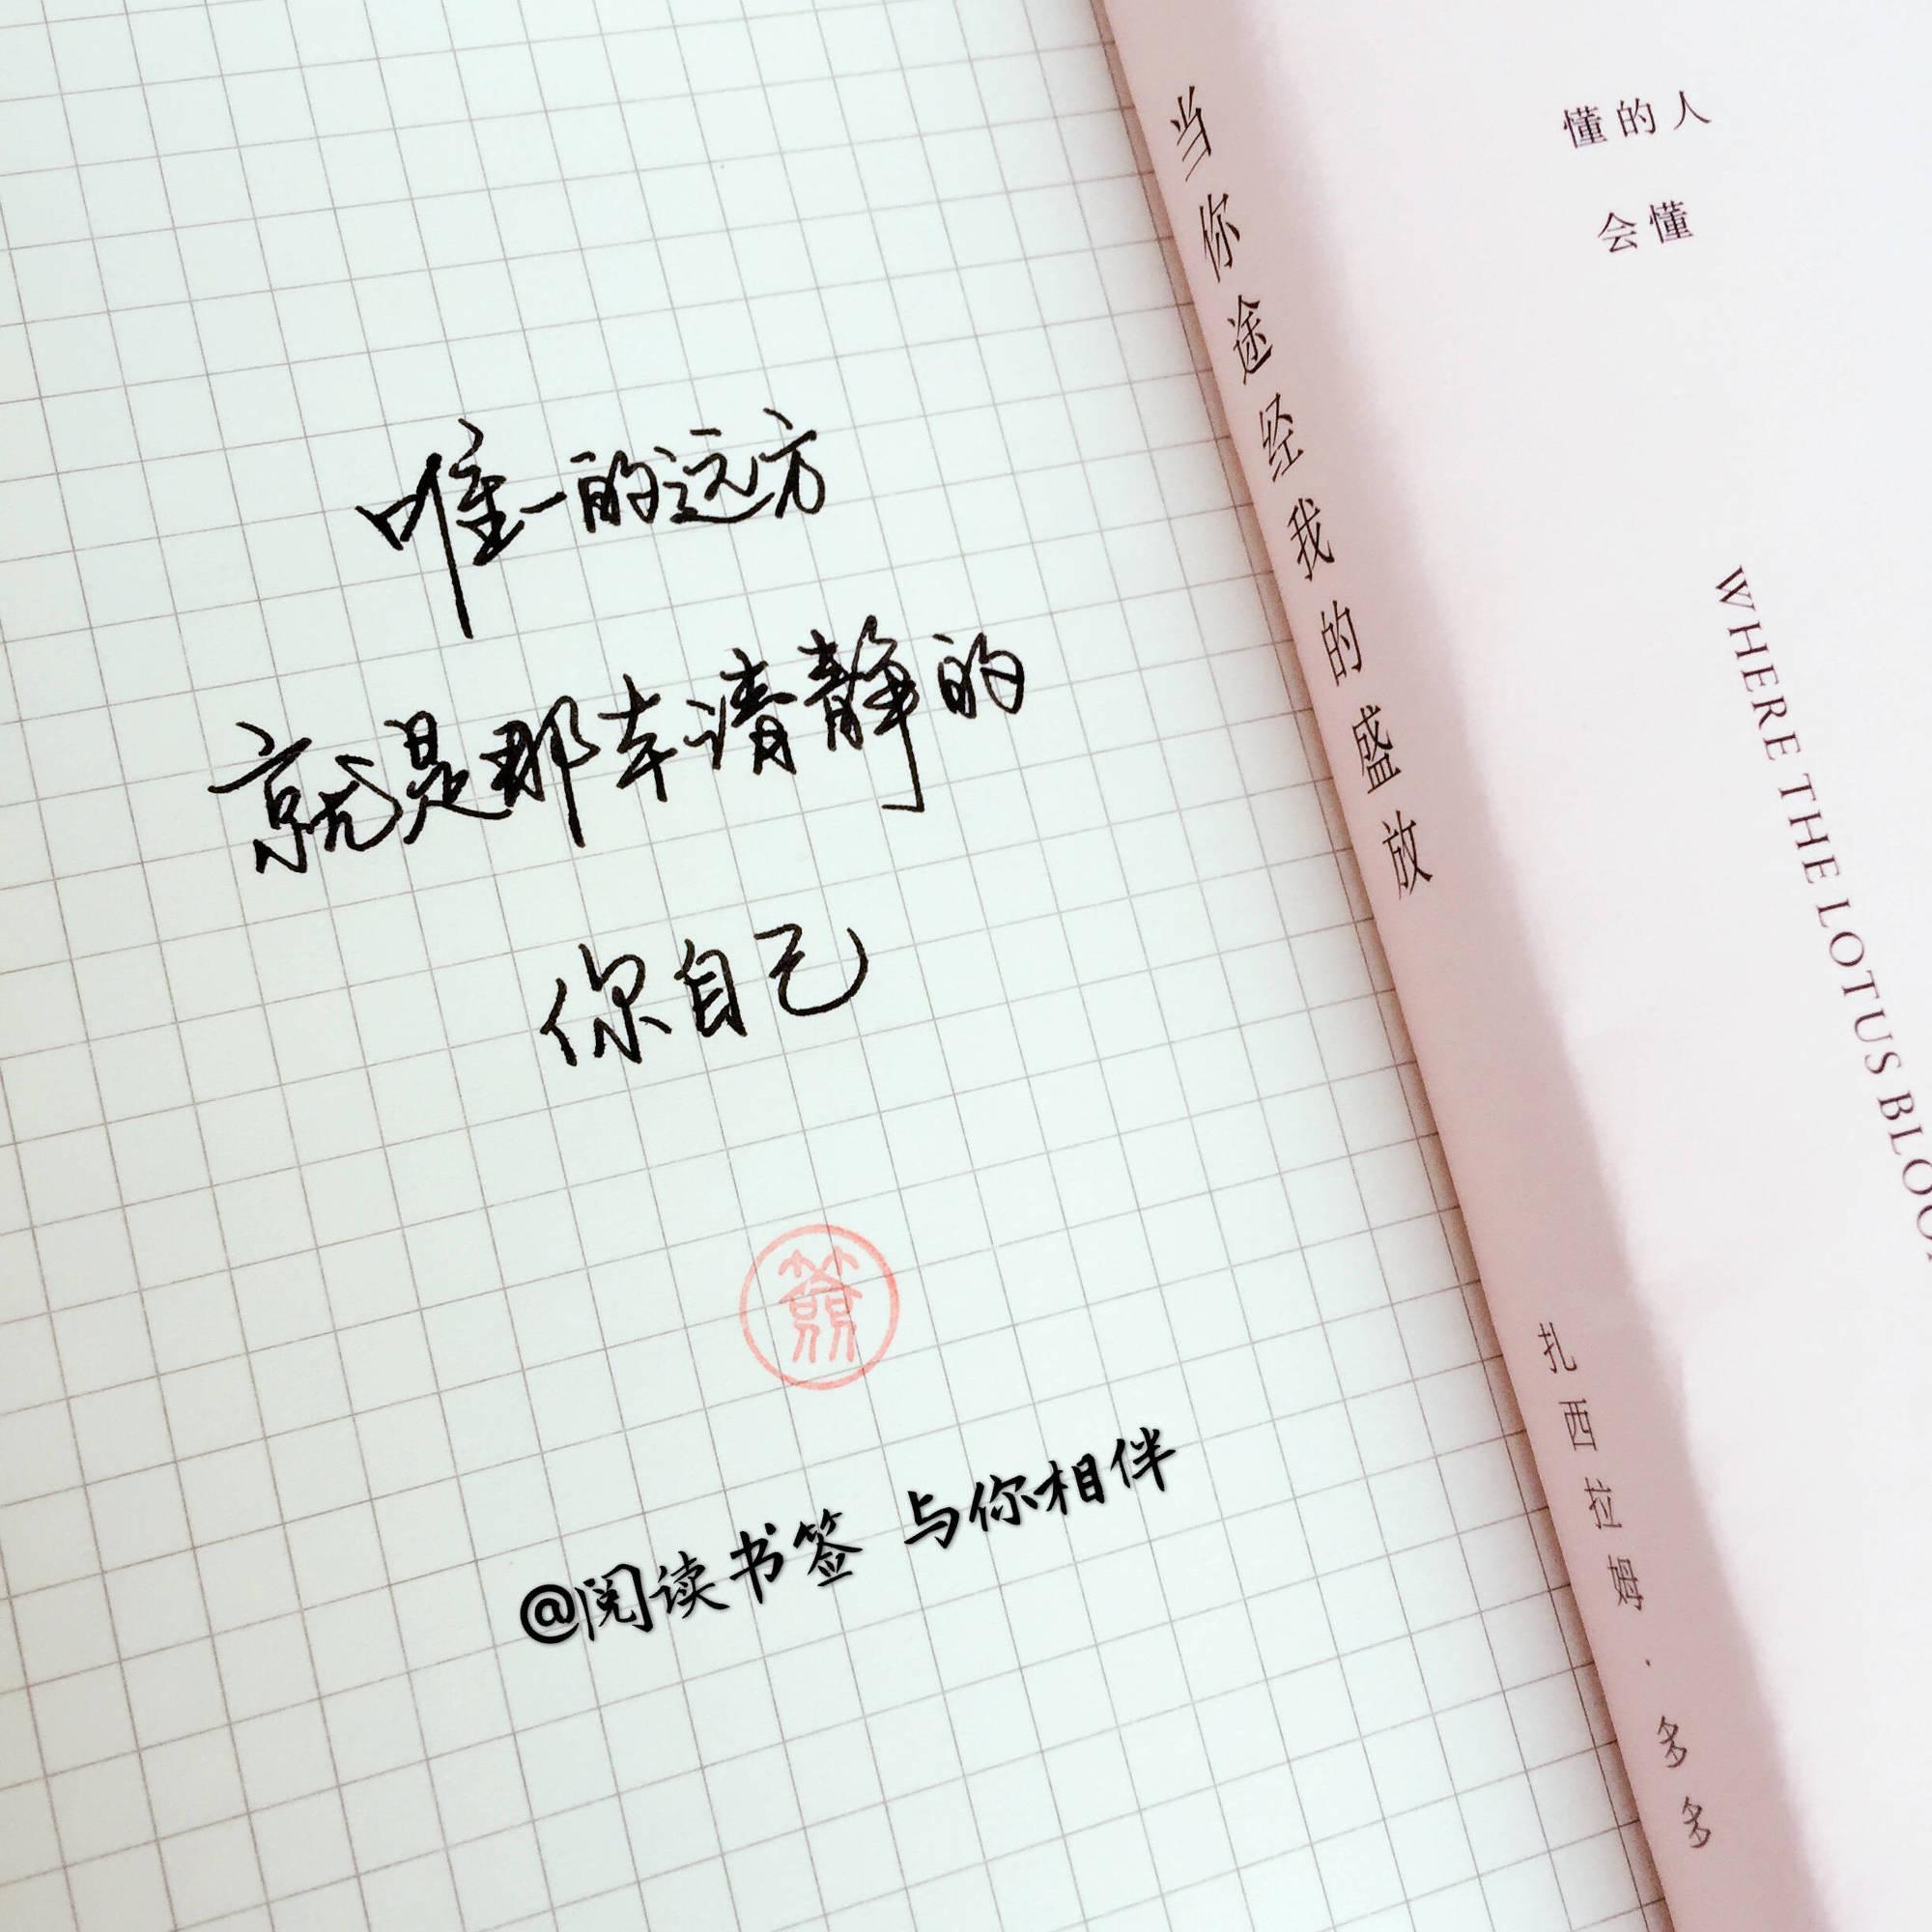 唯一的远方
就是那本清静的
你自己
簽
@阅读书签 与你相伴
当你途经我的盛放
扎西拉姆·多多
懂的人
会懂
WHERE THE LOTUS BLOO